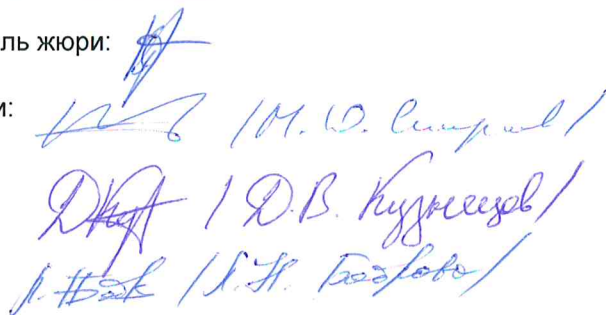 ль жюри:
и:
/М. Ю. Смирнов/
/ Д. В. Кузнецов/
/Л. Н. Боброва/